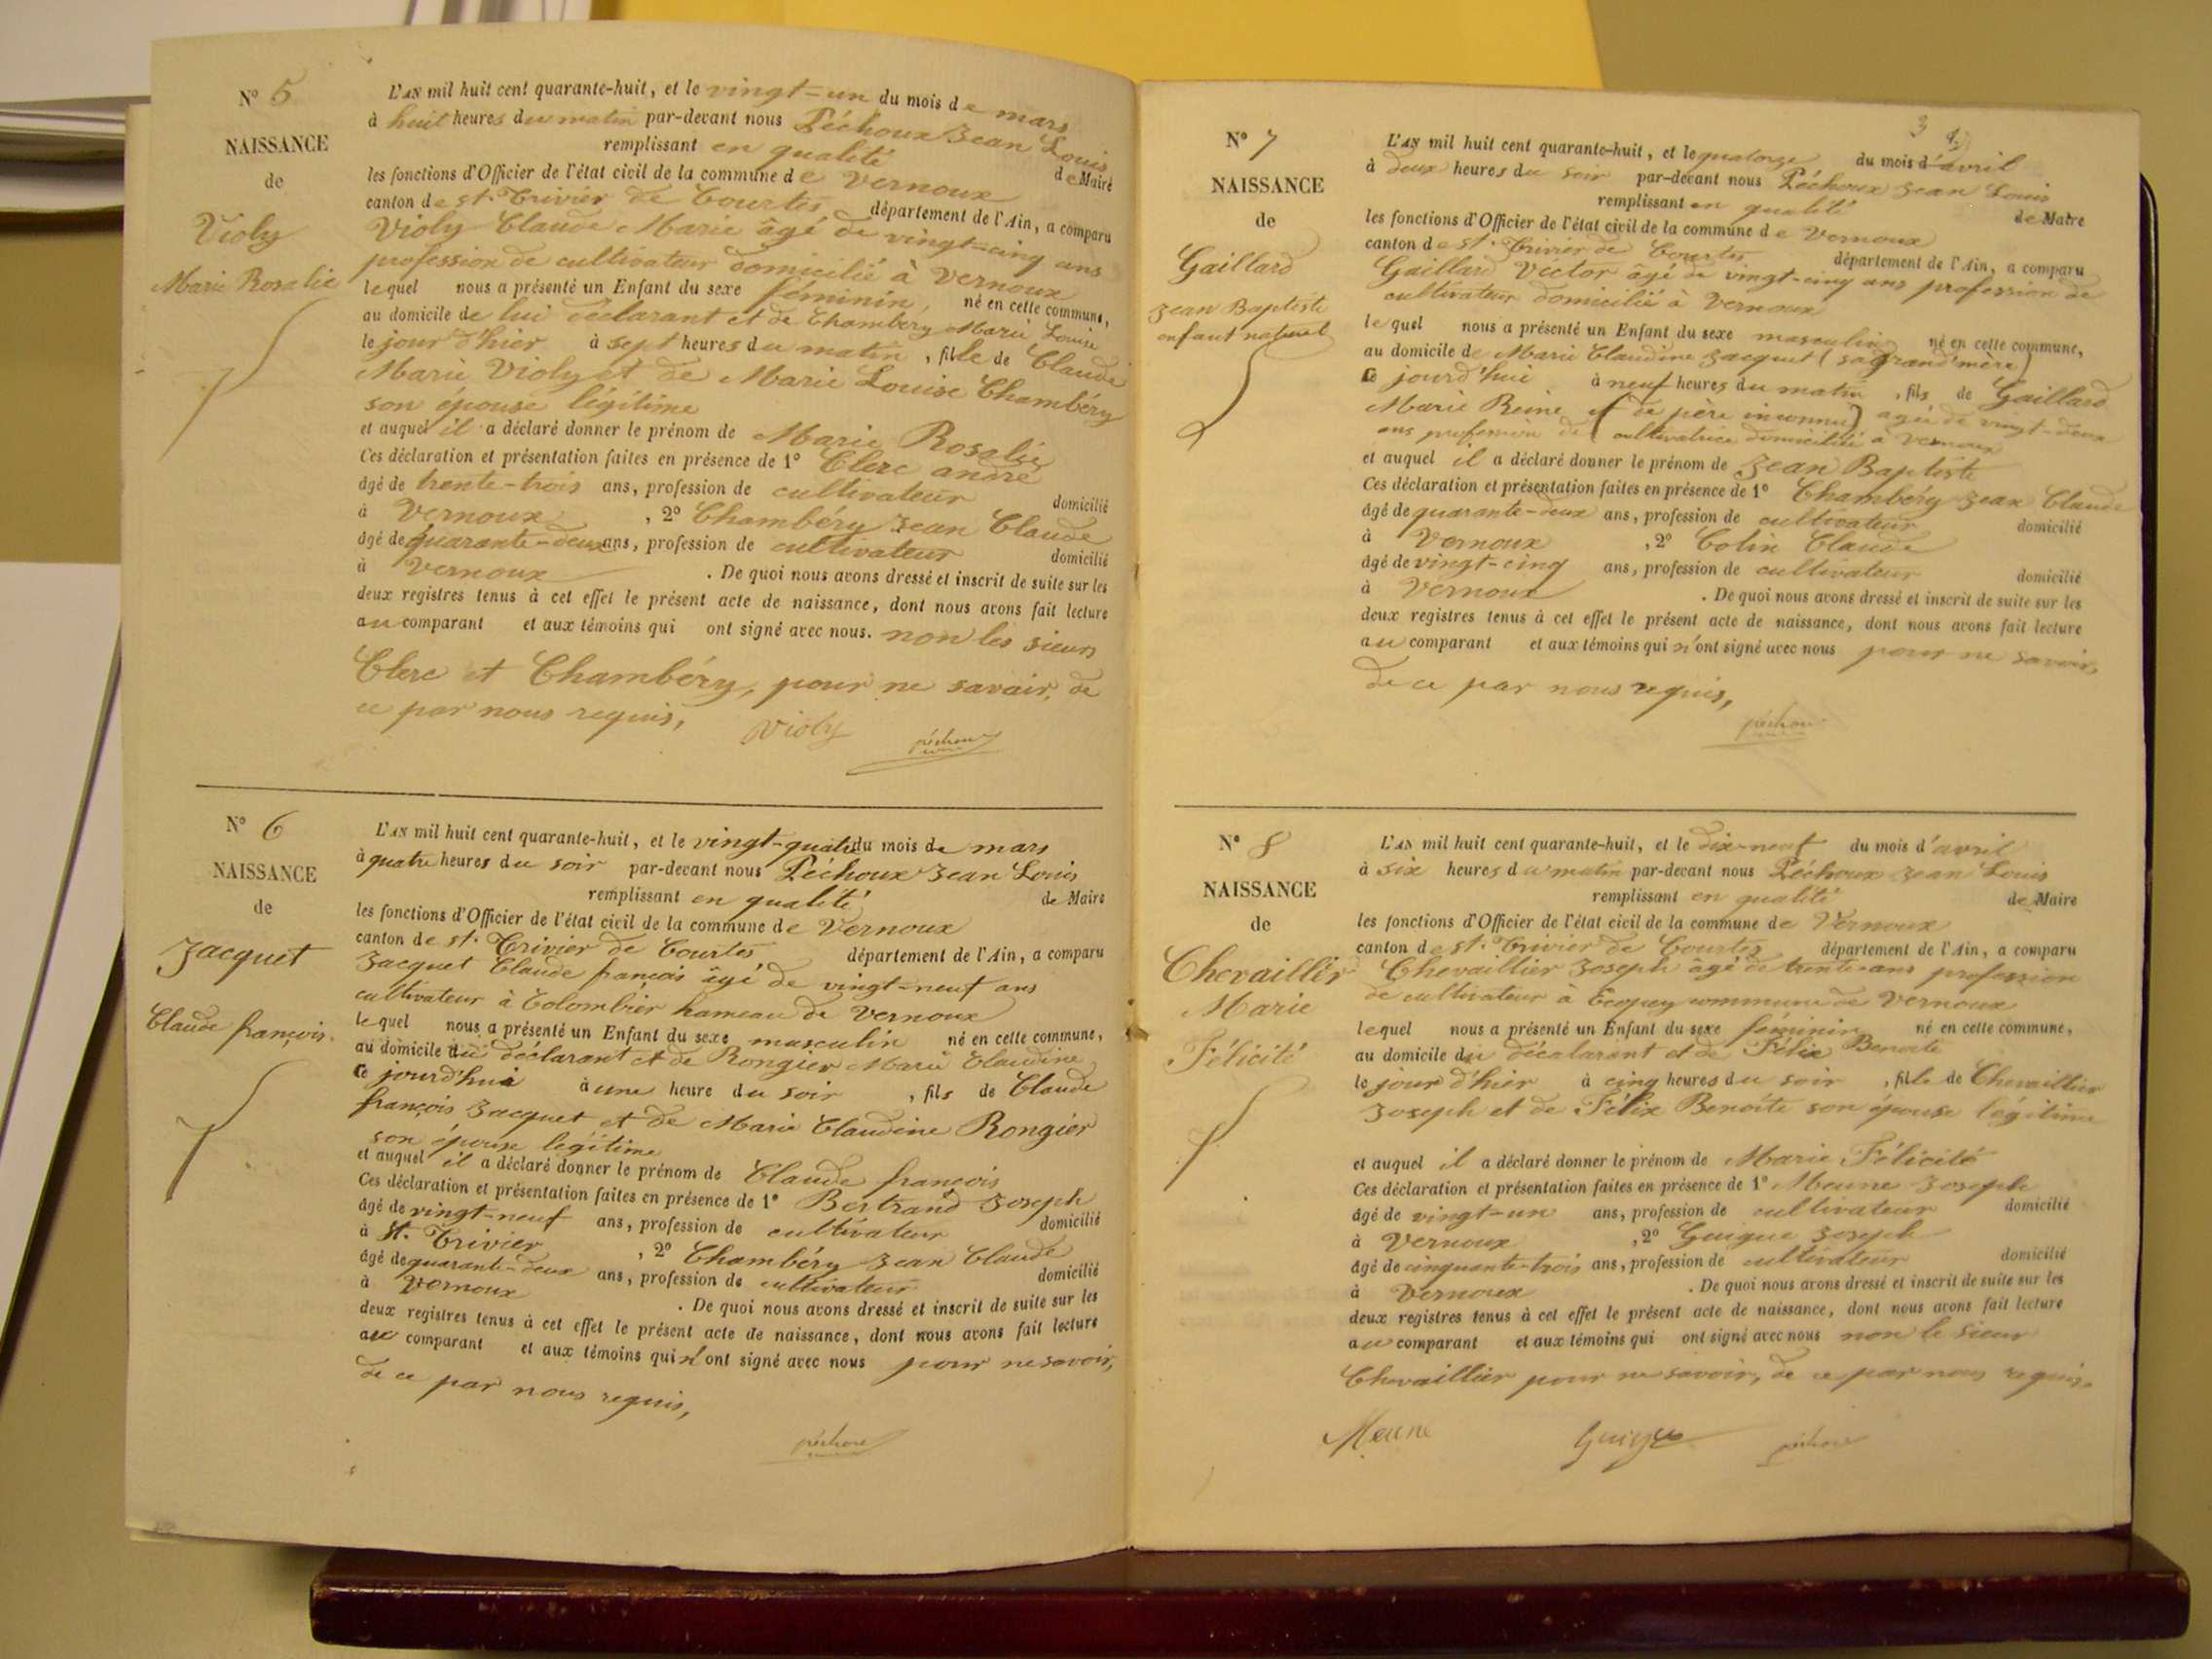 N° 5
NAISSANCE
de
Violy
Marie Rosalie
L'AN mil huit cent quarante-huit, et le vingt-un du mois de mars
à huit heures du matin par-devant nous Péchoux Jean Louis
remplissant en qualité de Maire
les fonctions d'Officier de l'état civil de la commune de Vernoux
canton de St. Trivier de Courtes département de l'Ain, a comparu
Violy Claude Marie âgé de vingt-cinq ans
profession de cultivateur domicilié à Vernoux
lequel nous a présenté un Enfant du sexe féminin, né en cette commune,
au domicile de lui déclarant et de Chambéry Marie Louise
le jour d'hier à sept heures du matin, fille de Claude
Marie Violy et de Marie Louise Chambéry
son épouse légitime
et auquel il a déclaré donner le prénom de Marie Rosalie
Ces déclaration et présentation faites en présence de 1° Clerc andré
âgé de trente-trois ans, profession de cultivateur domicilié
à Vernoux, 2° Chambéry Jean Claude
âgé de quarante-deux ans, profession de cultivateur domicilié
à Vernoux. De quoi nous avons dressé et inscrit de suite sur les
deux registres tenus à cet effet le présent acte de naissance, dont nous avons fait lecture
au comparant et aux témoins qui ont signé avec nous. non les sieurs
Clerc et Chambéry, pour ne savoir, de
ce par nous requis,
Violy péchoux
N° 6
NAISSANCE
de
Jacquet
Claude françois.
L'AN mil huit cent quarante-huit, et le vingt-quatre du mois de mars
à quatre heures du soir par-devant nous Péchoux Jean Louis
remplissant en qualité de Maire
les fonctions d'Officier de l'état civil de la commune de Vernoux
canton de St. Trivier de Courtes département de l'Ain, a comparu
Jacquet Claude françois âgé de vingt-neuf ans
cultivateur à Colombier hameau de Vernoux
lequel nous a présenté un Enfant du sexe masculin né en cette commune,
au domicile du déclarant et de Rongier Marie Claudine
ce jourd'hui à une heure du soir, fils de Claude
françois Jacquet et de Marie Claudine Rongier
son épouse légitime
et auquel il a déclaré donner le prénom de Claude françois
Ces déclaration et présentation faites en présence de 1° Bertrand Joseph
âgé de vingt-neuf ans, profession de cultivateur domicilié
à St. Trivier, 2° Chambéry Jean Claude
âgé de quarante-deux ans, profession de cultivateur domicilié
à Vernoux. De quoi nous avons dressé et inscrit de suite sur les
deux registres tenus à cet effet le présent acte de naissance, dont nous avons fait lecture
au comparant et aux témoins qui n'ont signé avec nous pour ne savoir,
de ce par nous requis,
péchoux
3
N° 7
NAISSANCE
de
Gaillard
Jean Baptiste
enfant naturel
L'AN mil huit cent quarante-huit, et le quatorze du mois d'avril
à deux heures du soir par-devant nous Péchoux Jean Louis
remplissant en qualité de Maire
les fonctions d'Officier de l'état civil de la commune de Vernoux
canton de St. Trivier de Courtes département de l'Ain, a comparu
Gaillard Victor âgé de vingt-cinq ans profession de
cultivateur domicilié à Vernoux
lequel nous a présenté un Enfant du sexe masculin né en cette commune,
au domicile de Marie Claudine Jacquet (sa grand'mère)
ce jourd'hui à neuf heures du matin, fils de Gaillard
Marie Reine et (de père inconnu) agée de vingt-deux
ans profession de cultivatrice domiciliée à Vernoux
et auquel il a déclaré donner le prénom de Jean Baptiste
Ces déclaration et présentation faites en présence de 1° Chambéry Jean Claude
âgé de quarante-deux ans, profession de cultivateur domicilié
à Vernoux, 2° Colin Claude
âgé de vingt-cinq ans, profession de cultivateur domicilié
à Vernoux. De quoi nous avons dressé et inscrit de suite sur les
deux registres tenus à cet effet le présent acte de naissance, dont nous avons fait lecture
au comparant et aux témoins qui n'ont signé avec nous pour ne savoir,
de ce par nous requis,
péchoux
N° 8
NAISSANCE
de
Chevaillier
Marie
Félicité
L'AN mil huit cent quarante-huit, et le dix-neuf du mois d'avril
à six heures du matin par-devant nous Péchoux Jean Louis
remplissant en qualité de Maire
les fonctions d'Officier de l'état civil de la commune de Vernoux
canton de St. Trivier de Courtes département de l'Ain, a comparu
Chevaillier Joseph âgé de trente ans profession
de cultivateur à Ecopey commune de Vernoux
lequel nous a présenté un Enfant du sexe féminin né en cette commune,
au domicile du décalarant et de Félix Benoite
le jour d'hier à cinq heures du soir, fille de Chevaillier
Joseph et de Félix Benoite son épouse légitime
et auquel il a déclaré donner le prénom de Marie Félicité
Ces déclaration et présentation faites en présence de 1° Meune Joseph
âgé de vingt-un ans, profession de cultivateur domicilié
à Vernoux, 2° Guigue Joseph
âgé de cinquante-trois ans, profession de cultivateur domicilié
à Vernoux. De quoi nous avons dressé et inscrit de suite sur les
deux registres tenus à cet effet le présent acte de naissance, dont nous avons fait lecture
au comparant et aux témoins qui ont signé avec nous non le sieur
Chevaillier pour ne savoir, de ce par nous requis,
Meune Guigue péchoux